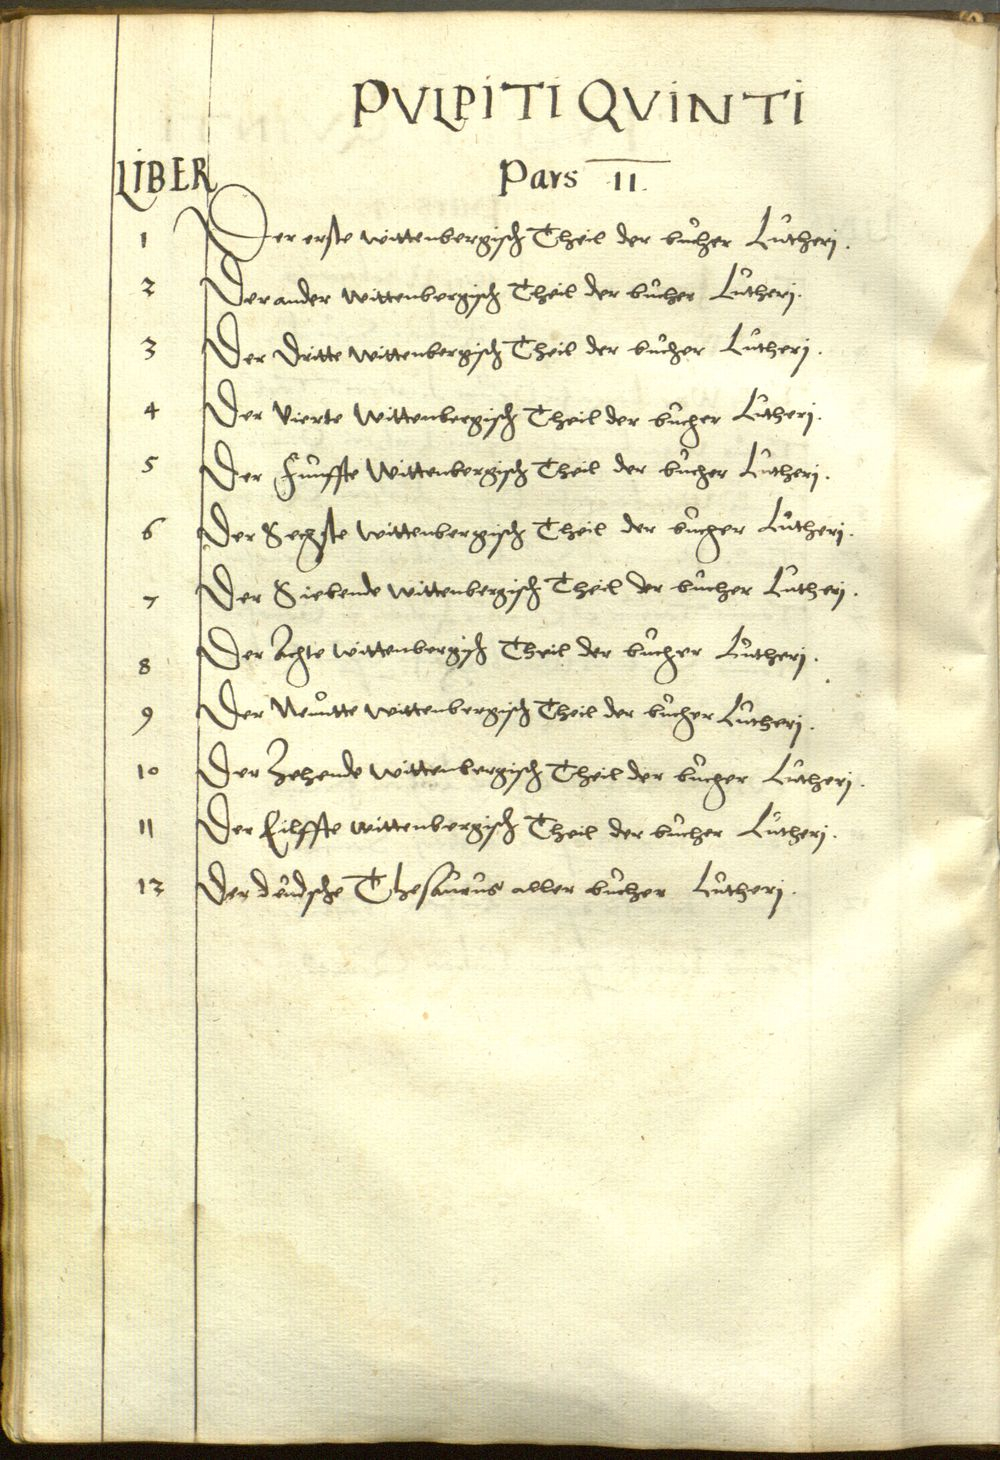 PVLPITI QVINTI
LIBER Pars II.
1 Der erste wittenbergisch Theil der bücher Lutheri.
2 Der ander wittenbergisch Theil der bücher Lutheri.
3 Der Dritte wittenbergisch Theil der bücher Lutheri.
4 Der Vierte Wittenbergisch Theil der bücher Lutheri.
5 Der Funffte Wittenbergisch Theil der bücher Lutheri.
6 Der Sechste wittenbergisch Theil der bücher Lutheri.
7 Der Siebende wittenbergisch Theil der bücher Lutheri.
8 Der Achte wittenbergisch Theil der bücher Lutheri.
9 Der Neuntte wittenbergisch Theil der bücher Lutheri.
10 Der Zehende wittenbergisch Theil der bücher Lutheri.
11 Der Eilffte wittenbergisch Theil der bücher Lutheri.
12 Der deudsche Thesaurus aller bücher Lutheri.